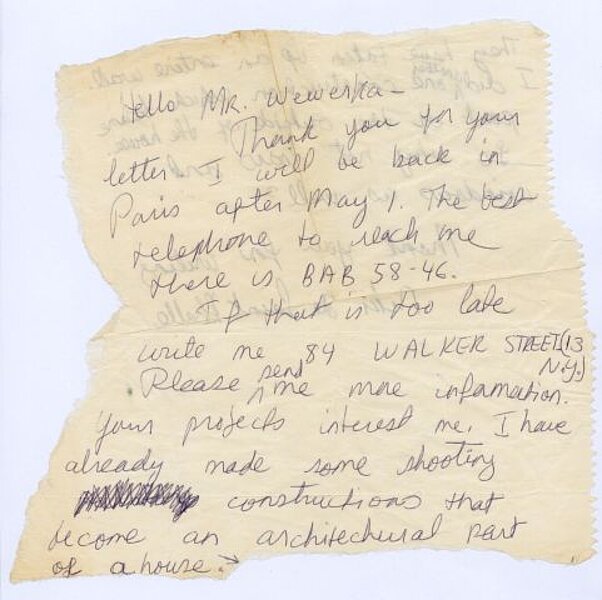 Hello Mr. Wewerka –
Thank you for your
letter I will be back in
Paris after May 1. The best
telephone to reach me
there is BAB 58-46.
If that is too late
write me 84 WALKER STREET (13
N.Y.)
Please send me more information.
Your projects interest me. I have
already made some shooting
constructions that
become an architectural part
of a house. →